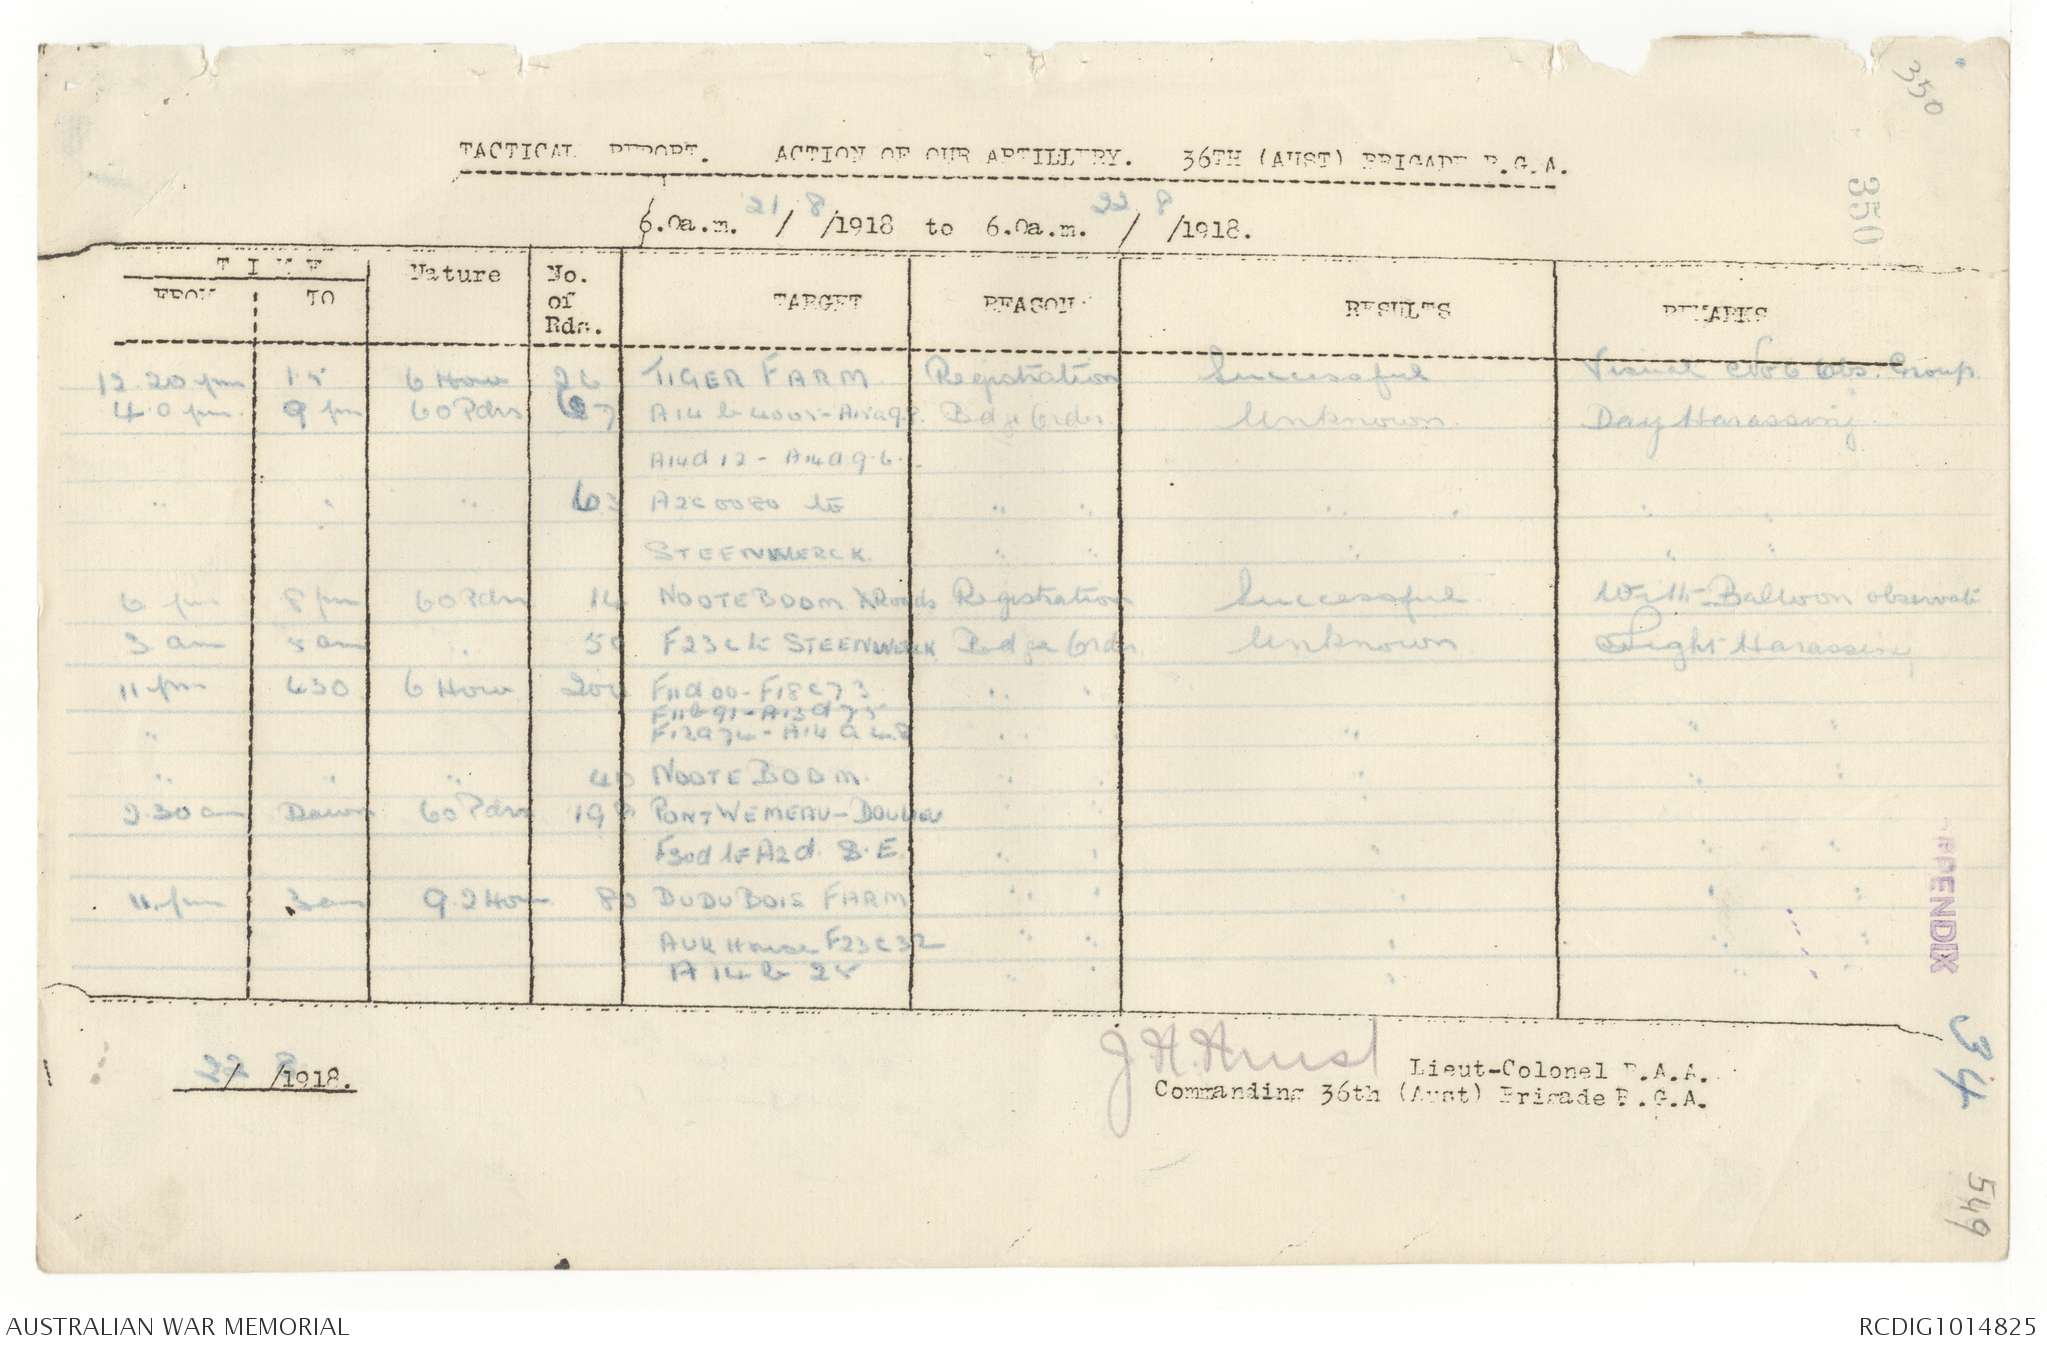 350
TACTICAL REPORT. ACTION OF OUR ARTILLERY. 36TH (AUST) BRIGADE R.G.A.
350
6.0a.m. 21/ 8/1918 to 6.0a.m. 22/ 8/1918.
TIME Nature No. of Rds. TARGET REASON RESULTS REMARKS
FROM TO
12.20 pm 1.5 6 How 26 TIGER FARM Registration Successful Visual No 6 Obs. Group.
4.0 pm. 9 pm 60 Pdrs 67 A14 b 4005 - Bdge Order Unknown. Day Harassing
A14d 12 - A14d 9.6.
" " " 63 A2c 0080 to " " " " " "
STEENWERCK. " " " " "
6 pm 8 pm 60 Pdrs 14 NOOTEBOOM X Roads Registration Successful With Balloon observati
3 am 5 am " 50 F23c to STEENWERCK Bdge Order Unknown Night Harassing
11 pm 430 6 How 200 F11d 00 - F18c73 " "
F11b91 - A13d75
" F12a74 - A14a4.8 " " " " "
" " " 40 NOOTEBOOM. " " " " "
2.30 am Dawn 60 Pdrs 198 PONT WEMEAU - DOULIEU " "
F30d to A2d. S.E. " " " " "
11. pm 3 am 9.2 How 80 DUDUBOIS FARM " " " " "
AUK House F23c32 " " " " "
A 14 b 25 " " "
APPENDIX 34
22/ 8/1918.
J H Hurst
Lieut-Colonel R.A.A.
Commanding 36th (Aust) Brigade R.G.A.
549
AUSTRALIAN WAR MEMORIAL
RCDIG1014825